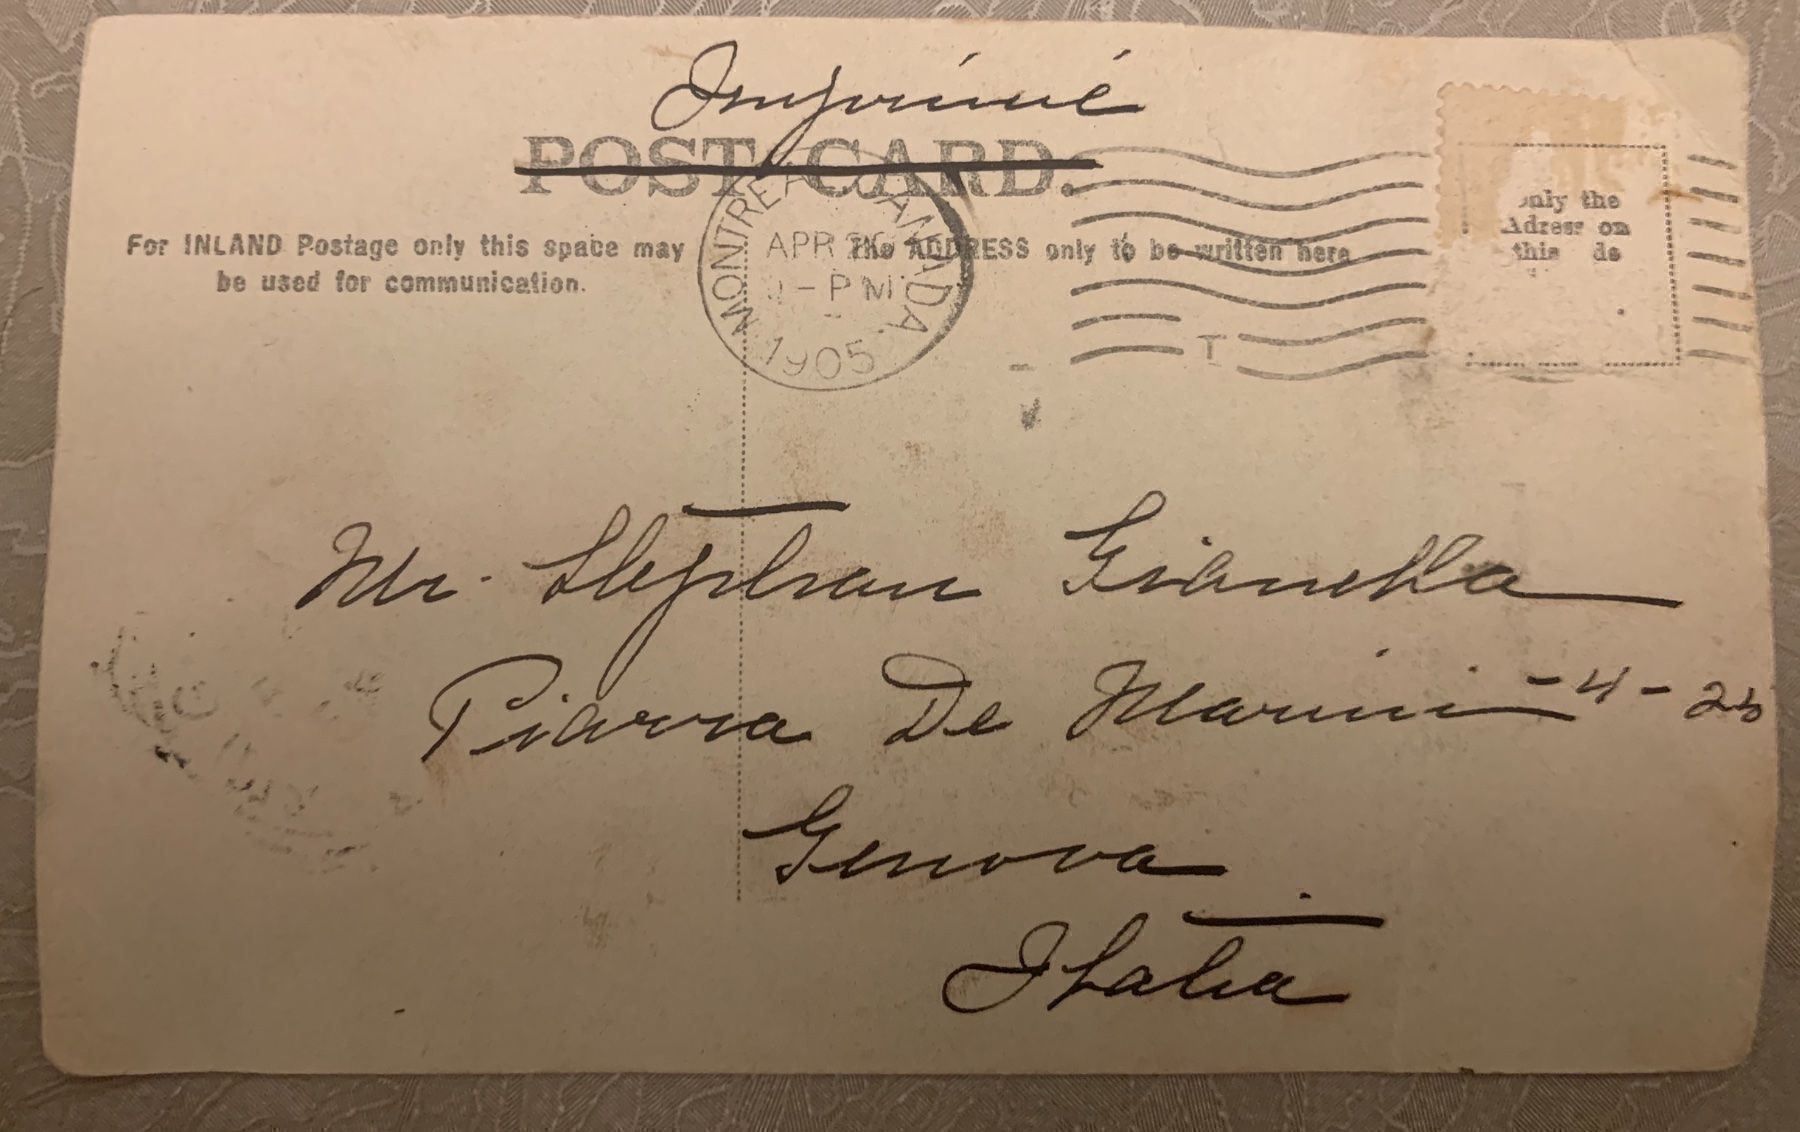 Imprimé
POST CARD.
For INLAND Postage only this space may
be used for communication.
The ADDRESS only to be written here
only the
Adress on
this
MONTREAL CANADA
APR
PM
1905
T
Mr. Stephan Gianella
Piazza De Marini - 4 - 25
Genova
Italia